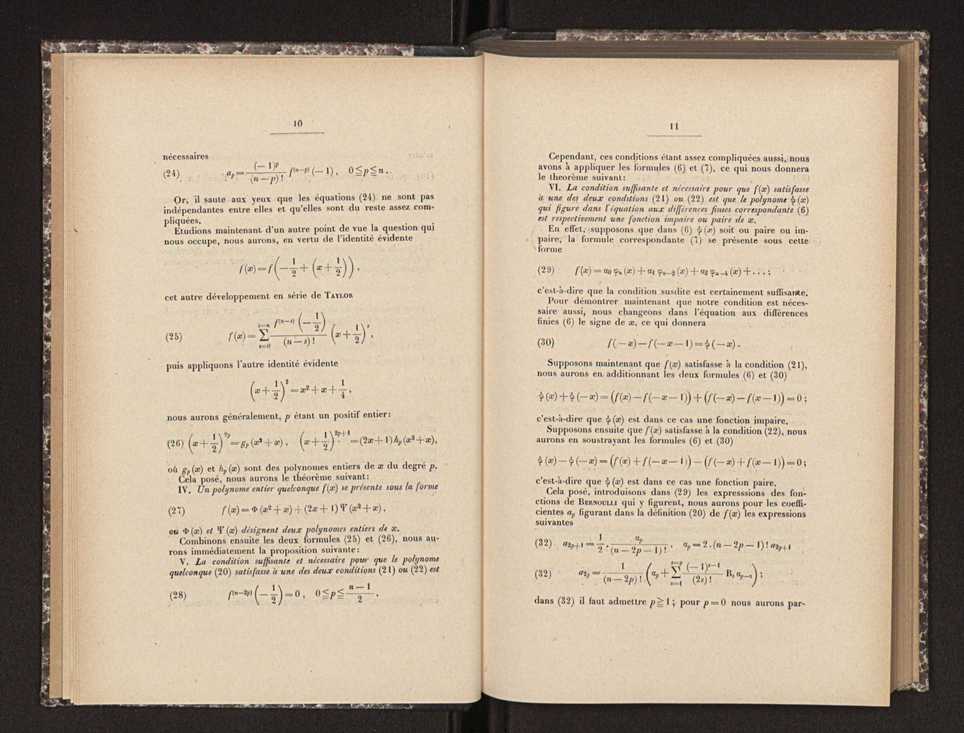 10
nécessaires
(24) a_p = (— 1)^p / (n — p)! f^(n—p) (— 1), 0 ≦ p ≦ n.
Or, il saute aux yeux que les équations (24) ne sont pas
indépendantes entre elles et qu'elles sont du reste assez com-
pliquées.
Etudions maintenant d'un autre point de vue la question qui
nous occupe, nous aurons, en vertu de l'identité évidente
f(x) = f(— 1/2 + (x + 1/2)),
cet autre développement en série de TAYLOR
(25) f(x) = Σ_{s=0}^{s=n} f^(n—s) (— 1/2) / (n — s)! (x + 1/2)^s,
puis appliquons l'autre identité évidente
(x + 1/2)^2 = x² + x + 1/4,
nous aurons généralement, p étant un positif entier:
(26) (x + 1/2)^2p = g_p (x² + x), (x + 1/2)^2p+1 = (2x + 1) h_p (x² + x),
où g_p (x) et h_p (x) sont des polynomes entiers de x du degré p.
Cela posé, nous aurons le théorème suivant:
IV. Un polynome entier quelconque f(x) se présente sous la forme
(27) f(x) = Φ (x² + x) + (2x + 1) Ψ (x² + x),
où Φ (x) et Ψ (x) désignent deux polynomes entiers de x.
Combinons ensuite les deux formules (25) et (26), nous au-
rons immédiatement la proposition suivante:
V. La condition suffisante et nécessaire pour que le polynome
quelconque (20) satisfasse à une des deux conditions (21) ou (22) est
(28) f^(n—2p) (— 1/2) = 0, 0 ≦ p ≦ (n — 1)/2.
11
Cependant, ces conditions étant assez compliquées aussi, nous
avons à appliquer les formules (6) et (7), ce qui nous donnera
le théorème suivant:
VI. La condition suffisante et nécessaire pour que f(x) satisfasse
à une des deux conditions (21) ou (22) est que le polynome ψ (x)
qui figure dans l'équation aux différences finies correspondante (6)
est respectivement une fonction impaire ou paire de x.
En effet, supposons que dans (6) ψ (x) soit ou paire ou im-
paire, la formule correspondante (7) se présente sous cette
forme
(29) f(x) = a₀ φ_n (x) + a₁ φ_n—2 (x) + a₂ φ_n—4 (x) + . . . ;
c'est-à-dire que la condition susdite est certainement suffisante.
Pour démontrer maintenant que notre condition est néces-
saire aussi, nous changeons dans l'équation aux différences
finies (6) le signe de x, ce qui donnera
(30) f(— x) — f(— x — 1) = ψ (— x).
Supposons maintenant que f(x) satisfasse à la condition (21),
nous aurons en additionnant les deux formules (6) et (30)
ψ (x) + ψ (— x) = (f(x) — f(— x — 1)) + (f(— x) — f(x — 1)) = 0 ;
c'est-à-dire que ψ (x) est dans ce cas une fonction impaire.
Supposons ensuite que f(x) satisfasse à la condition (22), nous
aurons en soustrayant les formules (6) et (30)
ψ (x) — ψ (— x) = (f(x) + f(— x — 1)) — (f(— x) + f(x — 1)) = 0 ;
c'est-à-dire que ψ (x) est dans ce cas une fonction paire.
Cela posé, introduisons dans (29) les expresssions des fon-
ctions de BERNOULLI qui y figurent, nous aurons pour les coeffi-
cientes a_p figurant dans la définition (20) de f(x) les expressions
suivantes
(32) a_2p+1 = 1/2 . a_p / (n — 2p — 1)! , a_p = 2 . (n — 2p — 1)! a_2p+1
(32) a_2p = 1 / (n — 2p)! (a_p + Σ_{s=1}^{s=p} (— 1)^s—1 / (2s)! B_s a_p—s) ;
dans (32) il faut admettre p ≧ 1 ; pour p = 0 nous aurons par-